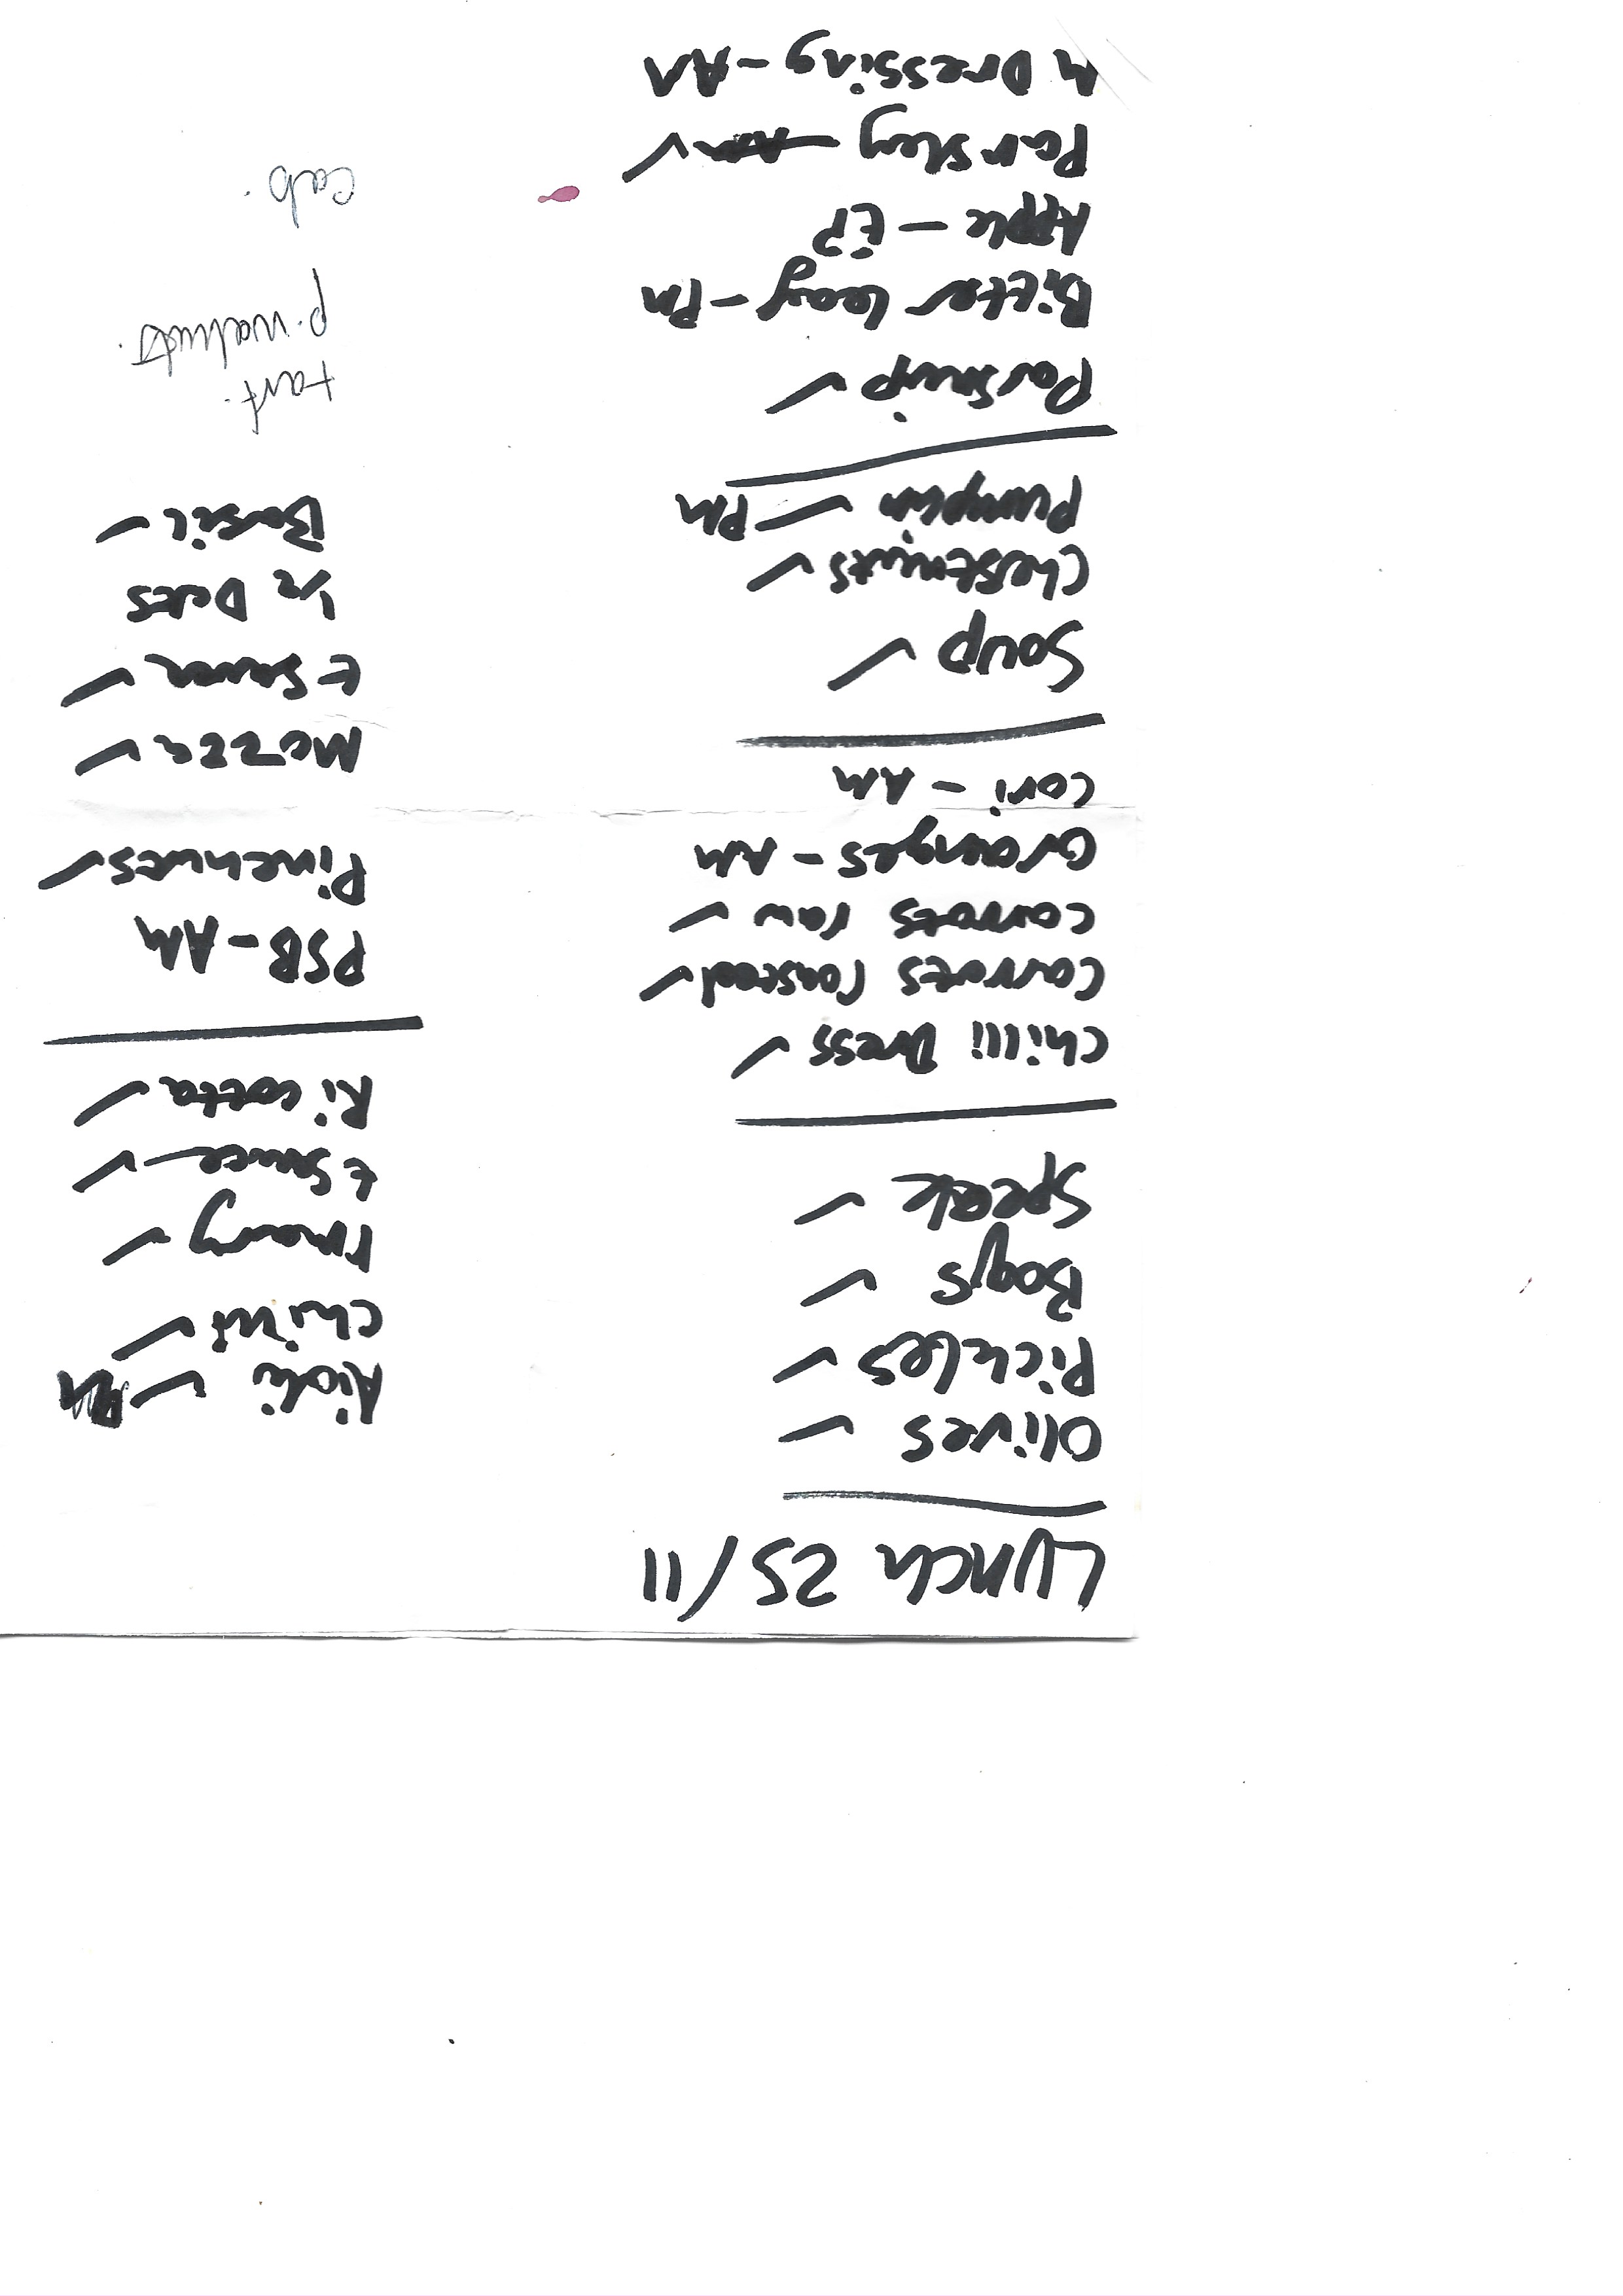 Lunch 25/11
Olives ✓
Pickles ✓
Bags ✓
Speck ✓
Chilli Dress ✓
Carrots roasted ✓
Carrots raw ✓
Oranges - AM
Cori - AM
Soup ✓
Chestnuts ✓
Pumpkin ✓ PM
Parsnip ✓
Bitter leaf - PM
Apple - EP
Parsley ✓
M Dressing - AM
Aioli ✓ PM
Chilli ✓
✓
t Sauce ✓
Ricotta ✓
PSB - AM
Pinenuts ✓
Mozer ✓
✓
1/2 Dates
Basil ✓
tart.
p. walnuts.
cab.